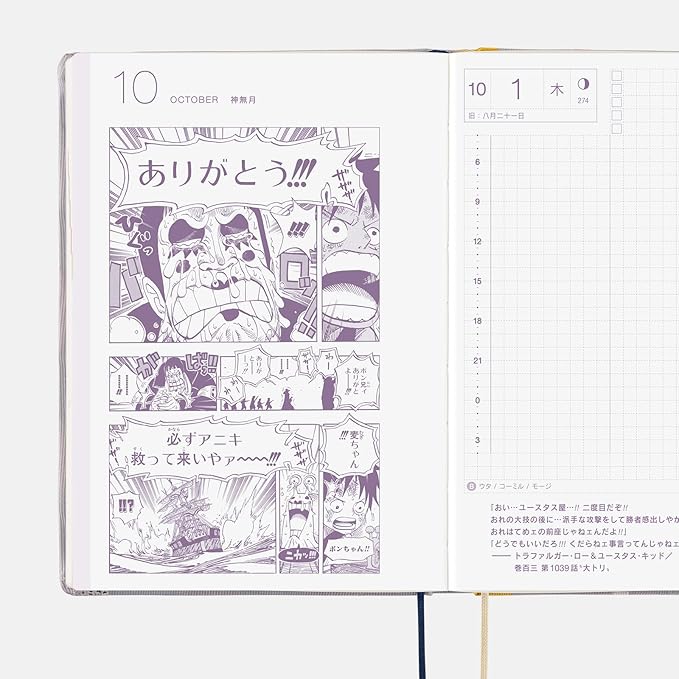 10 OCTOBER 神無月
ありがとう!!!
ザザザ
ひぐっ
!!!
バ
ロッ
ボン兄ィ
ありがと
よー
ありが
とー
っ!!
必ずアニキ
救って来いやァ〜〜〜!!!
かなら
すく
!!?
麦ちゃん
むぎ
ボンちゃん!!
ニカッ!!!
10 1 木
274
旧：八月二十一日
6
9
12
15
18
21
0
3
B ウタ / コーミル / モージ
「おい…ユースタス屋…!! 二度目だぞ!!
おれの大技の後に…派手な攻撃をして勝者感出しやが
おれはてめェの前座じゃねェんだよ!!」
「どうでもいいだろ!!! くだらねェ事言ってんじゃねェ
—— トラファルガー・ロー＆ユースタス・キッド／
巻百三 第1039話“大トリ„